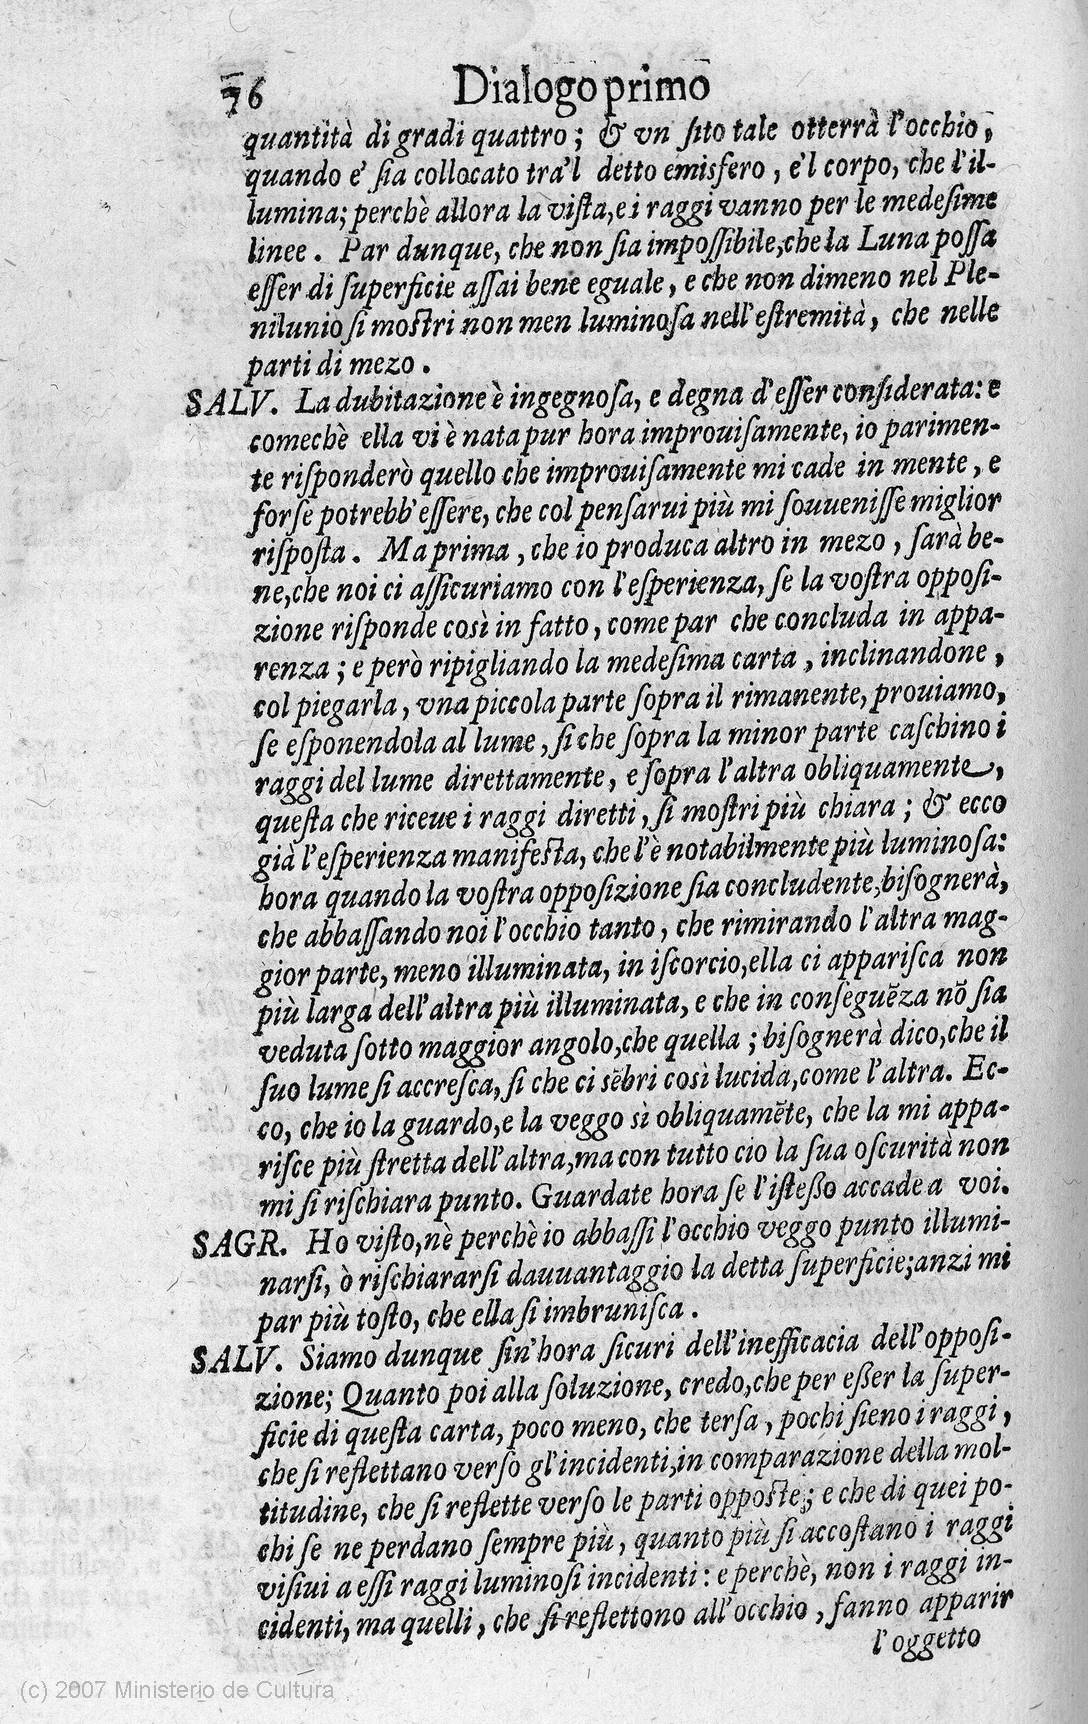 76 Dialogo primo
quantità di gradi quattro; & vn ſito tale otterrà l'occhio,
quando e' ſia collocato tra'l detto emisfero, e'l corpo, che l'il-
lumina; perchè allora la viſta, e i raggi vanno per le medeſime
linee. Par dunque, che non ſia impoſſibile, che la Luna poſſa
eſſer di ſuperficie aſſai bene eguale, e che non dimeno nel Ple-
nilunio ſi moſtri non men luminoſa nell'eſtremità, che nelle
parti di mezo.
SALV. La dubitazione è ingegnoſa, e degna d'eſſer conſiderata: e
comechè ella vi è nata pur hora improuiſamente, io parimen-
te riſponderò quello che improuiſamente mi cade in mente, e
forſe potrebb'eſſere, che col penſarui più mi ſouueniſſe miglior
riſpoſta. Ma prima, che io produca altro in mezo, ſarà be-
ne, che noi ci aſſicuriamo con l'eſperienza, ſe la voſtra oppoſi-
zione riſponde così in fatto, come par che concluda in appa-
renza; e però ripigliando la medeſima carta, inclinandone,
col piegarla, vna piccola parte ſopra il rimanente, prouiamo,
ſe eſponendola al lume, ſi che ſopra la minor parte caſchino i
raggi del lume direttamente, e ſopra l'altra obliquamente,
queſta che riceue i raggi diretti, ſi moſtri più chiara; & ecco
già l'eſperienza manifeſta, che l'è notabilmente più luminoſa:
hora quando la voſtra oppoſizione ſia concludente, biſognerà,
che abbaſſando noi l'occhio tanto, che rimirando l'altra mag-
gior parte, meno illuminata, in iſcorcio, ella ci appariſca non
più larga dell'altra più illuminata, e che in conſeguẽza nõ ſia
veduta ſotto maggior angolo, che quella; biſognerà dico, che il
ſuo lume ſi accreſca, ſi che ci sẽbri così lucida, come l'altra. Ec-
co, che io la guardo, e la veggo sì obliquamẽte, che la mi appa-
riſce più ſtretta dell'altra, ma con tutto cio la ſua oſcurità non
mi ſi riſchiara punto. Guardate hora ſe l'iſteßo accade a voi.
SAGR. Ho viſto, nè perchè io abbaſſi l'occhio veggo punto illumi-
narſi, ò riſchiararſi dauuantaggio la detta ſuperficie; anzi mi
par più toſto, che ella ſi imbruniſca.
SALV. Siamo dunque ſin'hora ſicuri dell'inefficacia dell'oppoſi-
zione; Quanto poi alla ſoluzione, credo, che per eßer la ſuper-
ficie di queſta carta, poco meno, che terſa, pochi ſieno i raggi,
che ſi reflettano verſo gl'incidenti, in comparazione della mol-
titudine, che ſi reflette verſo le parti oppoſte; e che di quei po-
chi ſe ne perdano ſempre più, quanto più ſi accoſtano i raggi
viſiui a eſſi raggi luminoſi incidenti: e perchè, non i raggi in-
cidenti, ma quelli, che ſi reflettono all'occhio, fanno apparir
l'oggetto
(c) 2007 Ministerio de Cultura